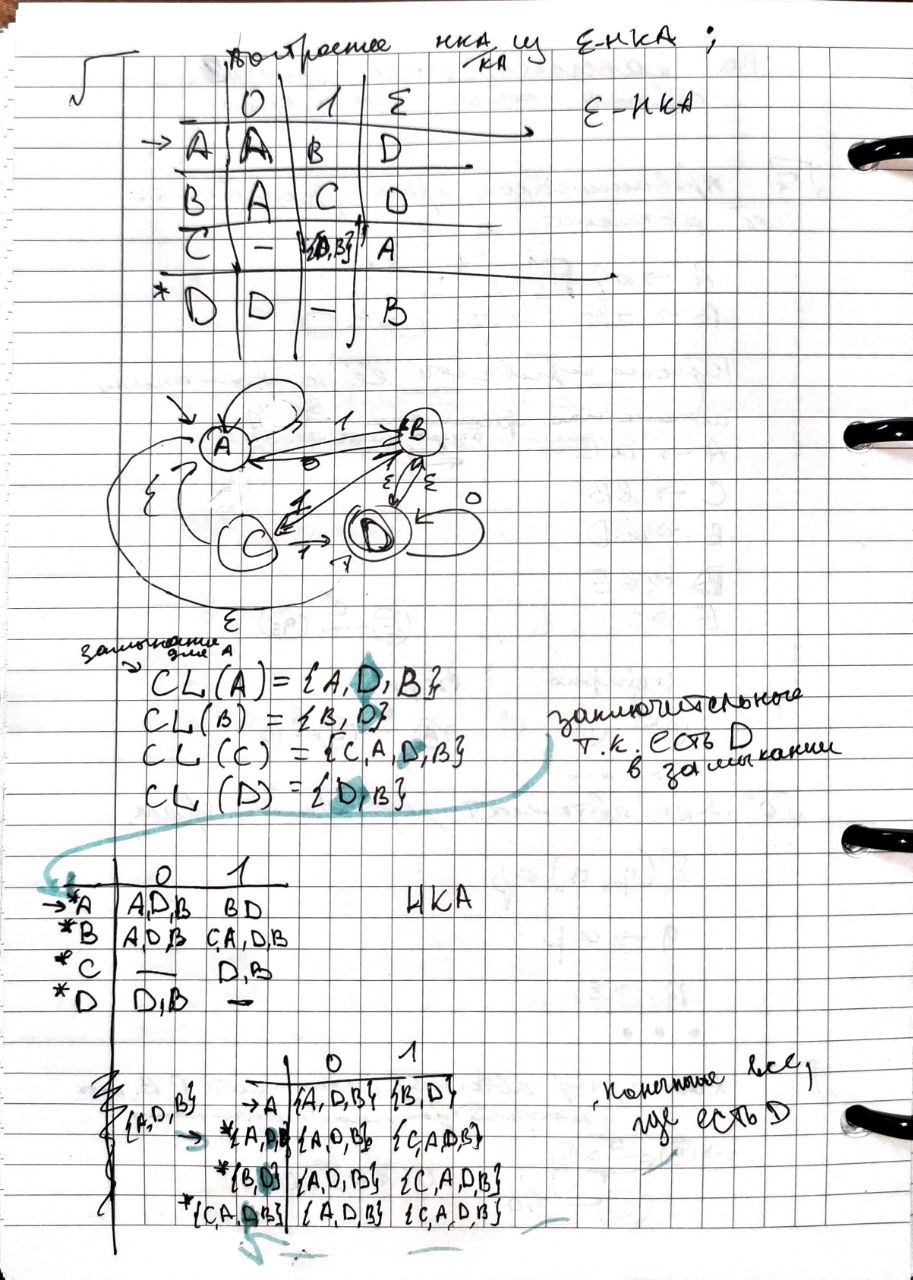 Построение НКА из Ε-НКА ;
КА
0 1 Ε
Ε-НКА
→ A A B D
B A C D
C - {D,B} A
* D D - B
A 1 B
0
Ε 1 Ε Ε 0
C 1 D
Ε
замыкание
для A
CL(A) = {A, D, B}
CL(B) = {B, D}
CL(C) = {C, A, D, B}
CL(D) = {D, B}
заключительные
т.к. есть D
в замыкании
0 1
→ *A A,D,B B D
НКА
*B A,D,B C,A,D,B
*C — D,B
*D D,B -
0 1
→A {A, D, B} {B, D}
{A,D,B} → *{A,D,B} {A,D,B} {C,A,D,B}
*{B,D} {A,D,B} {C,A,D,B}
*{C,A,D,B} {A,D,B} {C,A,D,B}
конечные все,
где есть D